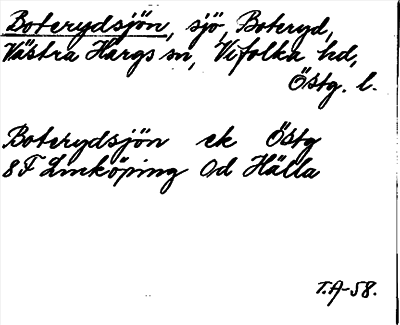 Boterydsjön, sjö, Boteryd,
Västra Hargs sn, Vifolka hd,
Östg. l.
Boterydsjön ek Östg
8F Linköping 0d Hälla
T.A-58.